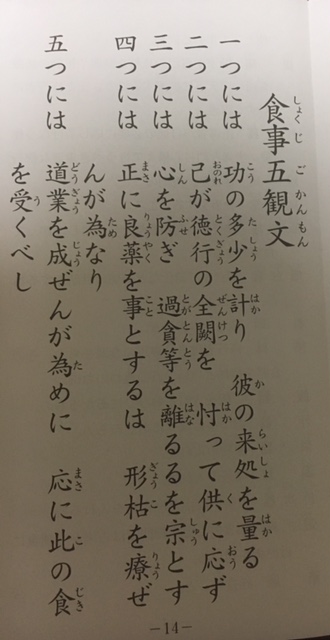 食事五観文
一つには 功の多少を計り 彼の来処を量る
二つには 己が徳行の全闕を 忖って供に応ず
三つには 心を防ぎ 過貪等を離るるを宗とす
四つには 正に良薬を事とするは 形枯を療ぜ
んが為なり
五つには 道業を成ぜんが為めに 応に此の食
を受くべし
-14-